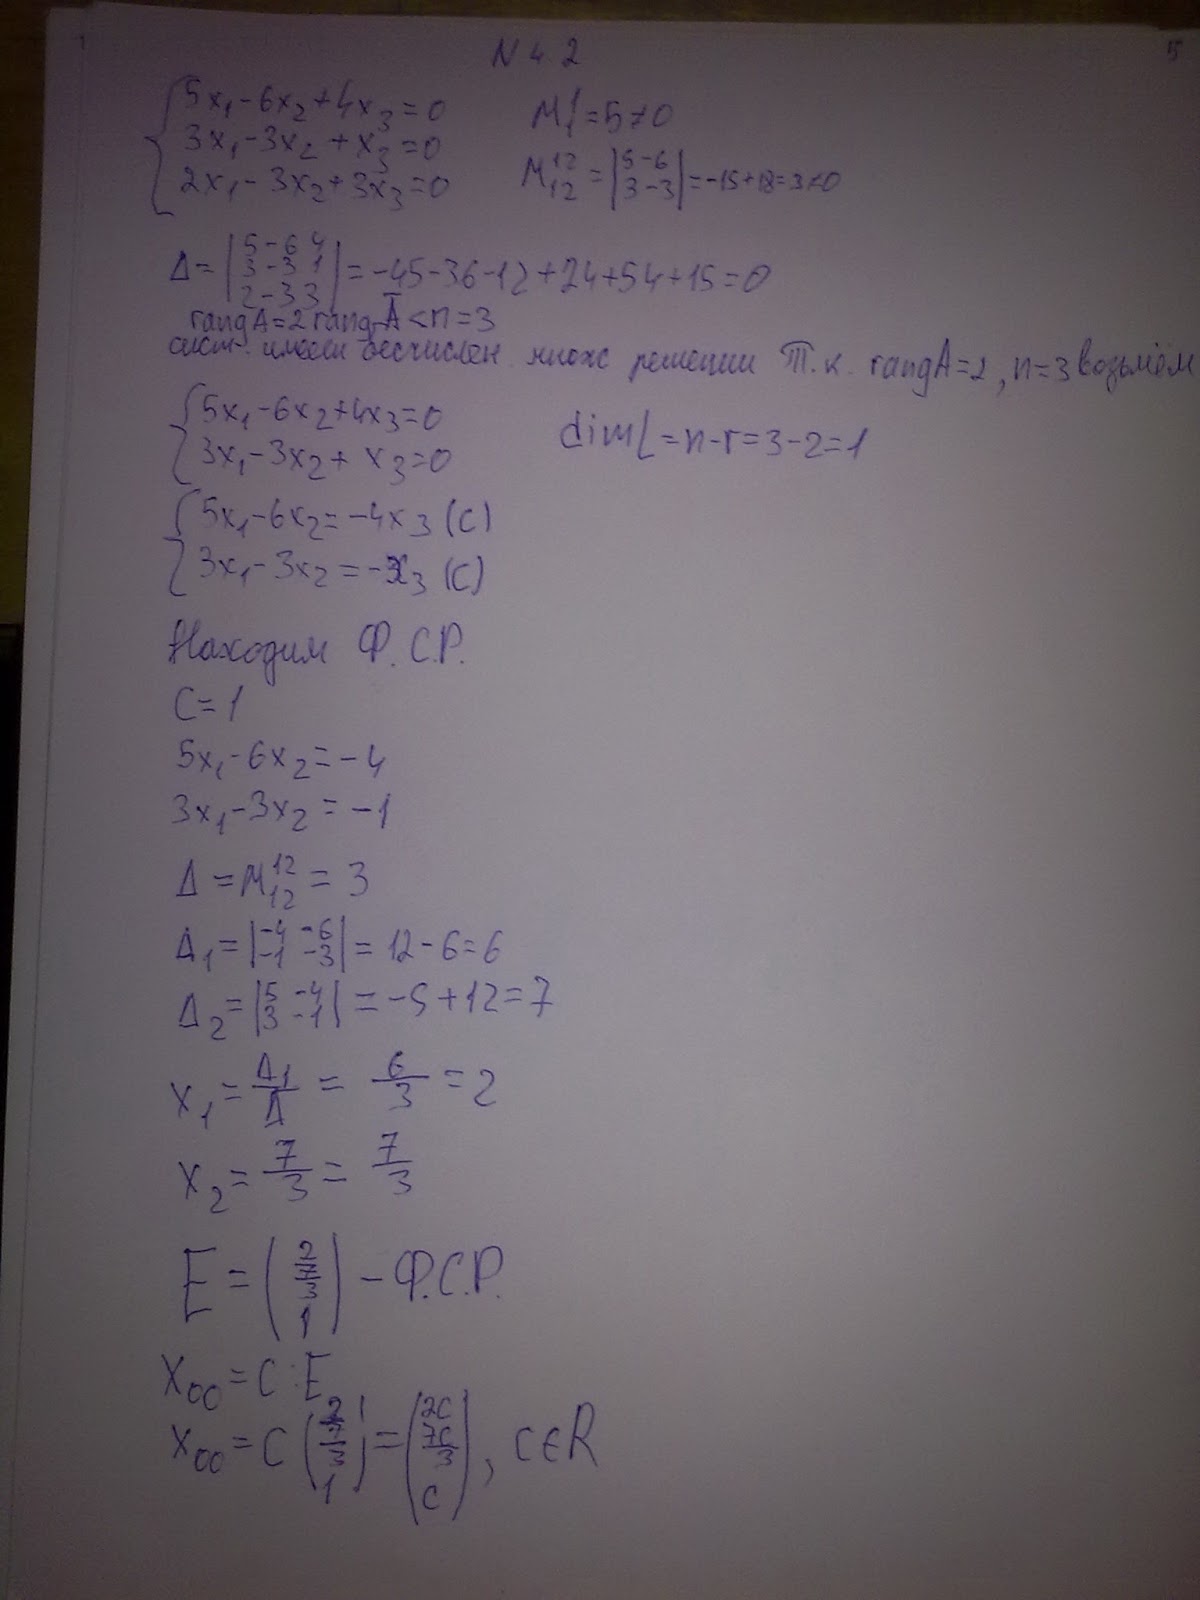 N 42 5
5x₁-6x₂+4x₃=0 M₁¹=5≠0
3x₁-3x₂+x₃=0
2x₁-3x₂+3x₃=0 M₁₂¹²=|5 -6; 3 -3|=-15+18=3≠0
Δ=|5 -6 4; 3 -3 1; 2 -3 3|=-45-36-12+24+54+15=0
rangA=2 rangĀ<n=3
сист. имеет бесчислен. множ решений Т.к. rangA=2, n=3 возьмём
5x₁-6x₂+4x₃=0
3x₁-3x₂+x₃=0 dimL=n-r=3-2=1
5x₁-6x₂=-4x₃(c)
3x₁-3x₂=-x₃(c)
Находим Ф.С.Р.
C=1
5x₁-6x₂=-4
3x₁-3x₂=-1
Δ=M₁₂¹²=3
Δ₁=|-4 -6; -1 -3|=12-6=6
Δ₂=|5 -4; 3 -1|=-5+12=7
x₁=Δ₁/Δ=6/3=2
x₂=7/3=7/3
E=(2; 7/3; 1)-Ф.С.Р.
X₀₀=C·E
X₀₀=C(2; 7/3; 1)=(2C; 7C/3; C), C∈R